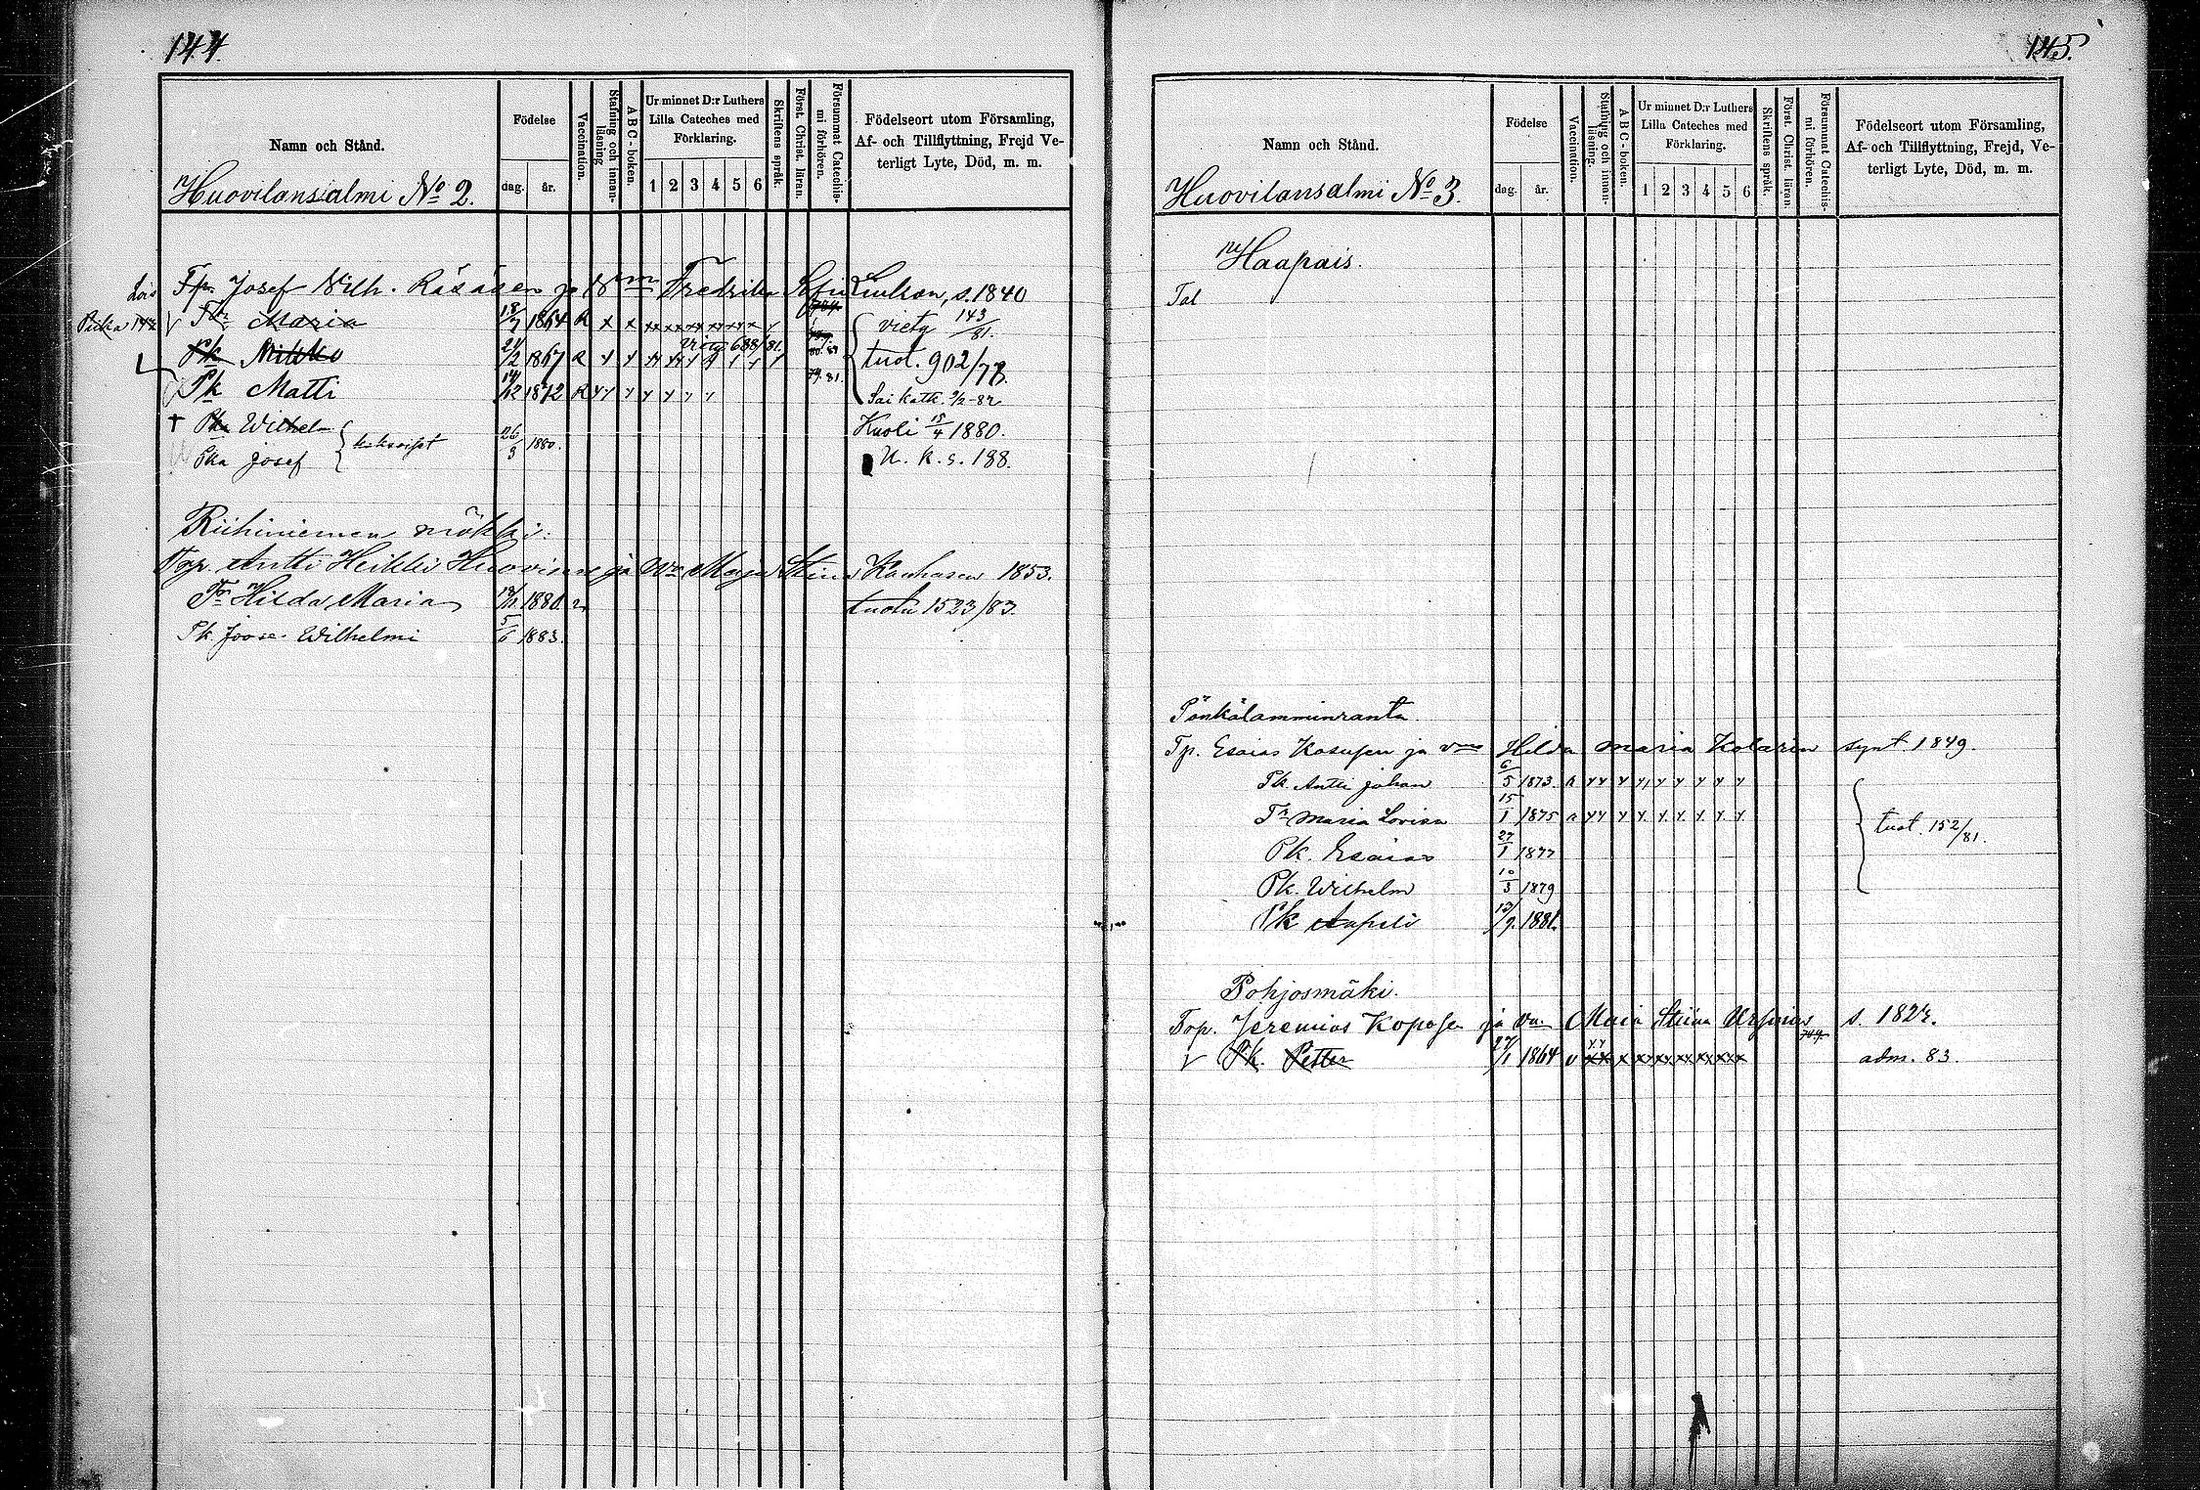 144.
Namn och Stånd.
Huovilansalmi No 2.
Födelse
dag. år.
Vaccination.
Stafning och innanläsning
A B C-boken.
Ur minnet D:r Luthers
Lilla Cateches med
Förklaring.
1 2 3 4 5 6
Skriftens språk.
Först. Christ. läran.
Försummat Catechismi förhören.
Födelseort utom Församling,
Af- och Tillflyttning, Frejd Ve-
terligt Lyte, Död, m. m.
Tp. Josef Wilh. Räsäsen ja Fredrika s. 1840
Tr Maria 18/7 1864 R x x viety 143/81.
Pk Mikko 24/2 1867 R viety 688/81. tuot. 902/78.
Pk Matti 14/12 1872 R
Pka Wilhelm Kuoli 15/4 1880.
Pka Josef kaksoiset 26/3 1880. U. k. s. 188.
Riihiniemen mökki:
Antti Heikki Huovinen ja Maja Stina Kauhasen 1853.
Tr Hilda Maria 1880. tuotu 1523/83.
Pk. Joose Wilhelmi 5/6 1883.
145.
Namn och Stånd.
Huovilansalmi No 3.
Födelse
dag. år.
Vaccination.
Stafning och innanläsning.
A B C-boken.
Ur minnet D:r Luthers
Lilla Cateches med
Förklaring.
1 2 3 4 5 6
Skriftens språk.
Först. Christ. läran.
Försummat Catechismi förhören.
Födelseort utom Församling,
Af- och Tillflyttning, Frejd, Ve-
terligt Lyte, Död, m. m.
Haapais.
Tal
Pönkälamminranta.
Tp. Esaias Kosusen ja Hilda Maria Kolarin synt 1849.
Pk. Antti Johan 6/5 1873.
Tr Maria Lovisa 15/1 1875 tuot. 152/81.
Pk. Esaias 27/1 1877
Pk. Wilhelm 10/3 1879
Pk Aapeli 13/9 1881.
Pohjosmäki.
Top. Jeremias Koposen ja Maia Stiina
Pk. Petter 27/1 1864 adm. 83.